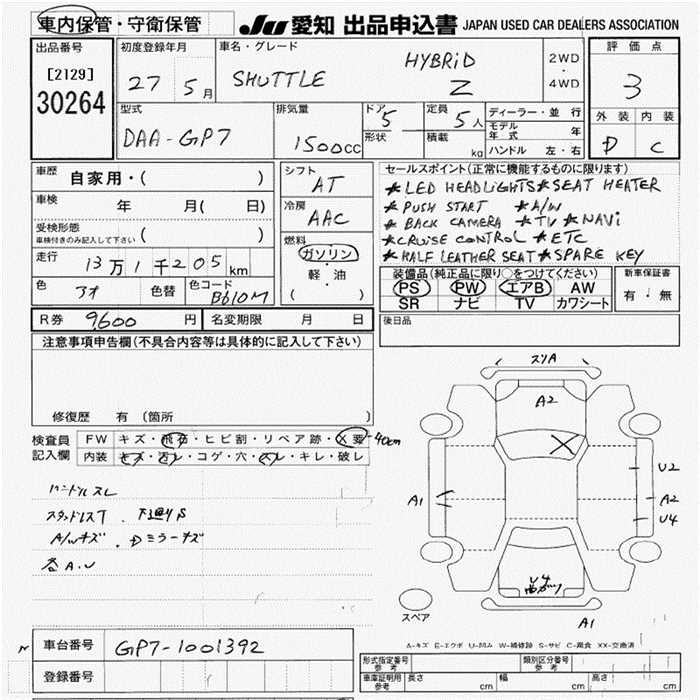 車内保管・守衛保管 JU 愛知 出品申込書 JAPAN USED CAR DEALERS ASSOCIATION
出品番号 [2129] 30264
初度登録年月 27 5月
車名・グレード SHUTTLE HYBRID Z
2WD・4WD
評価点 3
外装 内装
D C
型式 DAA-GP7
排気量 1500cc
ドア 5
形状
定員 5人
積載 kg
ディーラー・並行
モデル年式 年
ハンドル 左・右
車歴 自家用・( )
車検 年 月( 日)
受検形態 ( )
車検付きのみ記入して下さい
走行 13万1千205km
色 アオ 色替 色コード B610M
シフト AT
冷房 AAC
燃料 ガソリン
軽・油
( )
セールスポイント(正常に機能するものに限ります)
*LED HEADLIGHTS *SEAT HEATER
*PUSH START *A/W
*BACK CAMERA *TV *NAVI
*CRUISE CONTROL *ETC
*HALF LEATHER SEAT *SPARE KEY
装備品(純正品に限り○をつけてください)
PS PW エアB AW
SR ナビ TV カワシート
新車保証書
有・無
R券 9,600円 名変期限 月 日
後日品
注意事項申告欄(不具合内容等は具体的に記入して下さい)
修復歴 有 (箇所 )
検査員記入欄
FW キズ・飛石・ヒビ割・リペア跡・X要 -40cm
内装 キズ・汚レ・コゲ・穴・スレ・キレ・破レ
ハンドルスレ
スタッドレスT . 下廻りS
A/Wキズ . Dミラーキズ
各A.U
スリA
A2
X
A1
U2
A2
U4
U4
A1
スペア
A-キズ E-エクボ U-凹み W-補修跡 S-サビ C-腐食 XX-交換済
車台番号 GP7-1001392
登録番号
形式指定番号 参考
類別区分番号 参考
車庫証明用 参考 長さ cm 幅 cm 高さ cm